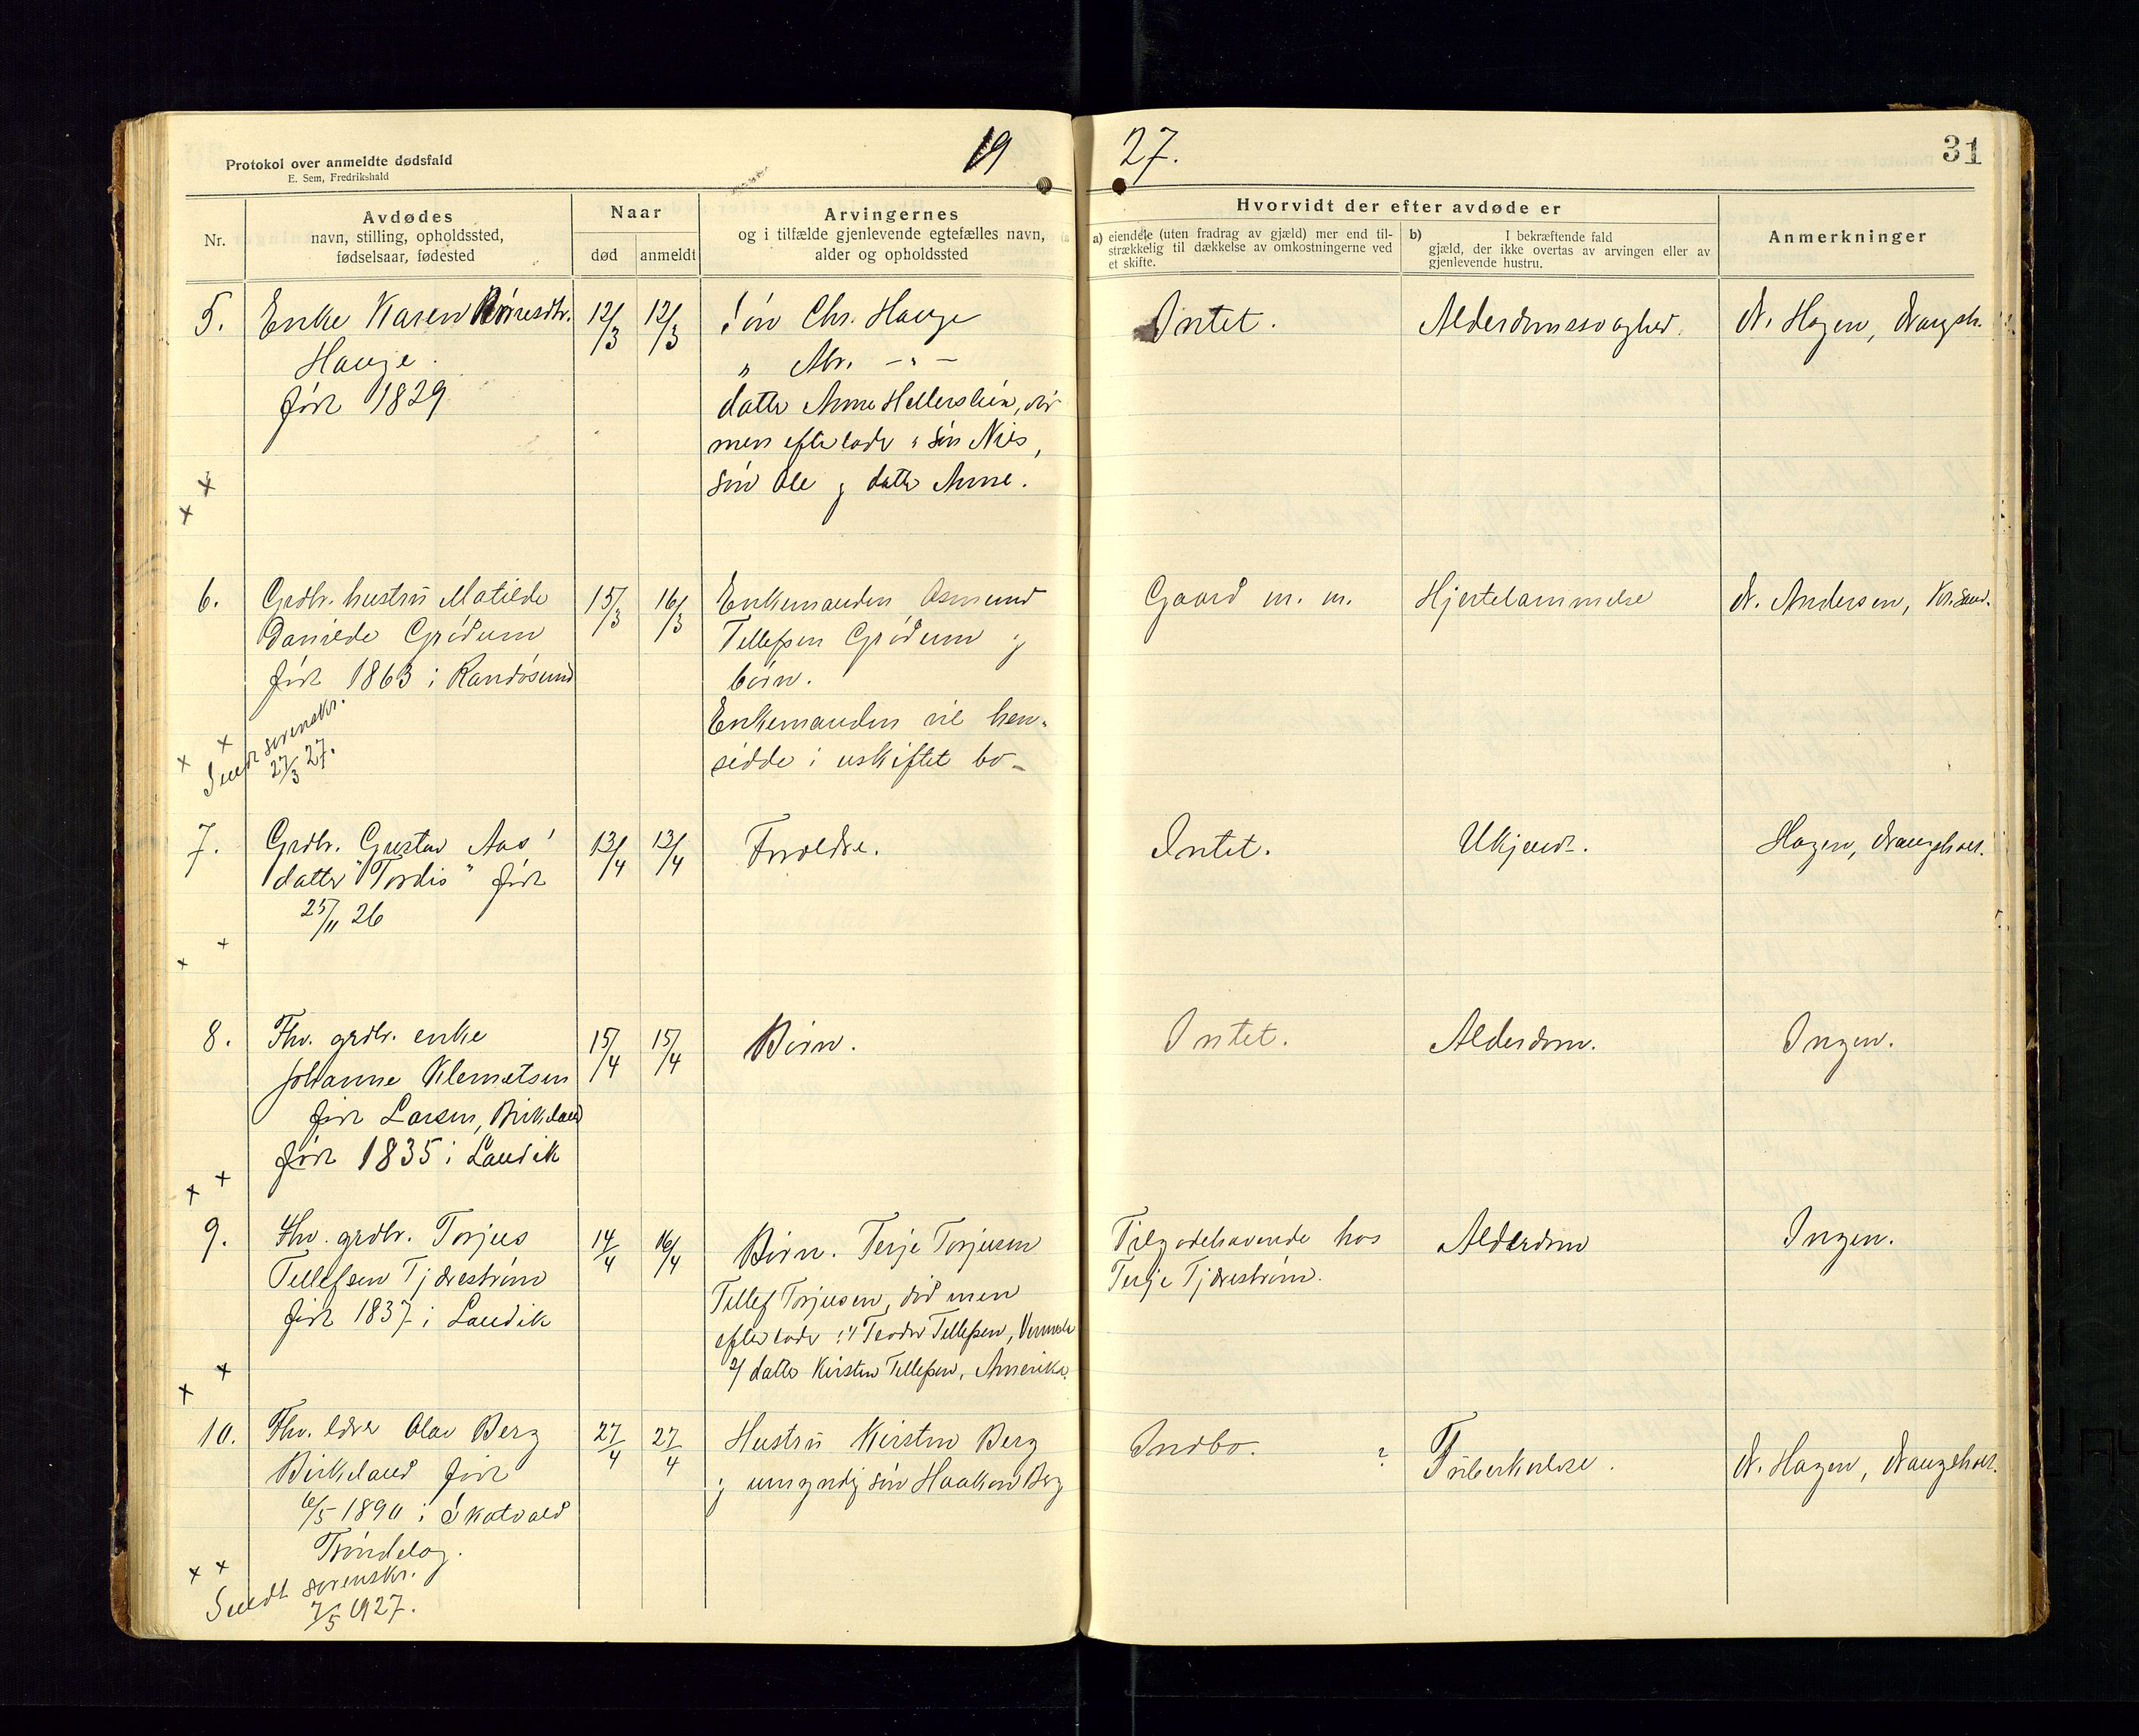 Protokol over anmeldte dødsfald
E. Sem, Fredrikshald
19
27.
31
Nr.
Avdødes
navn, stilling, opholdssted,
fødselsaar, fødested
Naar
død
anmeldt
Arvingernes
og i tilfælde gjenlevende egtefælles navn,
alder og opholdssted
Hvorvidt der efter avdøde er
a) eiendele (uten fradrag av gjæld) mer end til-
strækkelig til dækkelse av omkostningerne ved
et skifte.
b) I bekræftende fald
gjæld, der ikke overtas av arvingen eller av
gjenlevende hustru.
Anmerkninger
5.
Enke Karen
Hauge.
født 1829
12/3
12/3
Søn Chr. Hauge
" Abr. — " —
datter Anne, død
men efterlader: søn Nils,
søn Ole og datter Anne.
Intet.
Alderdomssvaghed.
N. Hagen,
6.
Grdbr. hustru Matilde
Danielde Grødum
født 1863 i Randøsund
15/3
16/3
Enkemanden Osmund
Tellefsen Grødum og
børn.
Enkemanden vil hen-
sidde i uskiftet bo —
Gaard m. m.
Hjertelammelse
N. Andersen, Kr.sand.
Sendt sorenskr.
27/3 27.
7.
Grdbr. Gustav Aas'
datter "Tordis" født
25/11 26
13/4
13/4
Forældre.
Intet.
Ukjendt.
Hagen,
8.
Fhv. grdbr. enke
Johanne Klemetsen
født Larsen, Birkeland
født 1835 i Landvik
15/4
15/4
Børn.
Intet.
Alderdom.
Ingen.
9.
Fhv. grdbr. Torjus
Tellefsen Tjærestrøm
født 1837 i Landvik
14/4
16/4
Børn. Terje Torjusen
Tellef Torjusen, død men
efterlader: 1/ Teodor Tellefsen,
2/ datter Kirsten Tellefsen, Amerika.
Tilgodehavende hos
Terje Tjærestrøm.
Alderdom
Ingen.
10.
Fhv. lærer Olav Berg
Birkeland født
6/5 1890 i Skatvald
Trøndelag.
27/4
27/4
Hustru Kirsten Berg
og umyndig søn Haakon Berg
Indbo.
?
Tuberkulose.
N. Hagen,
Sendt sorenskr.
7/5 1927.